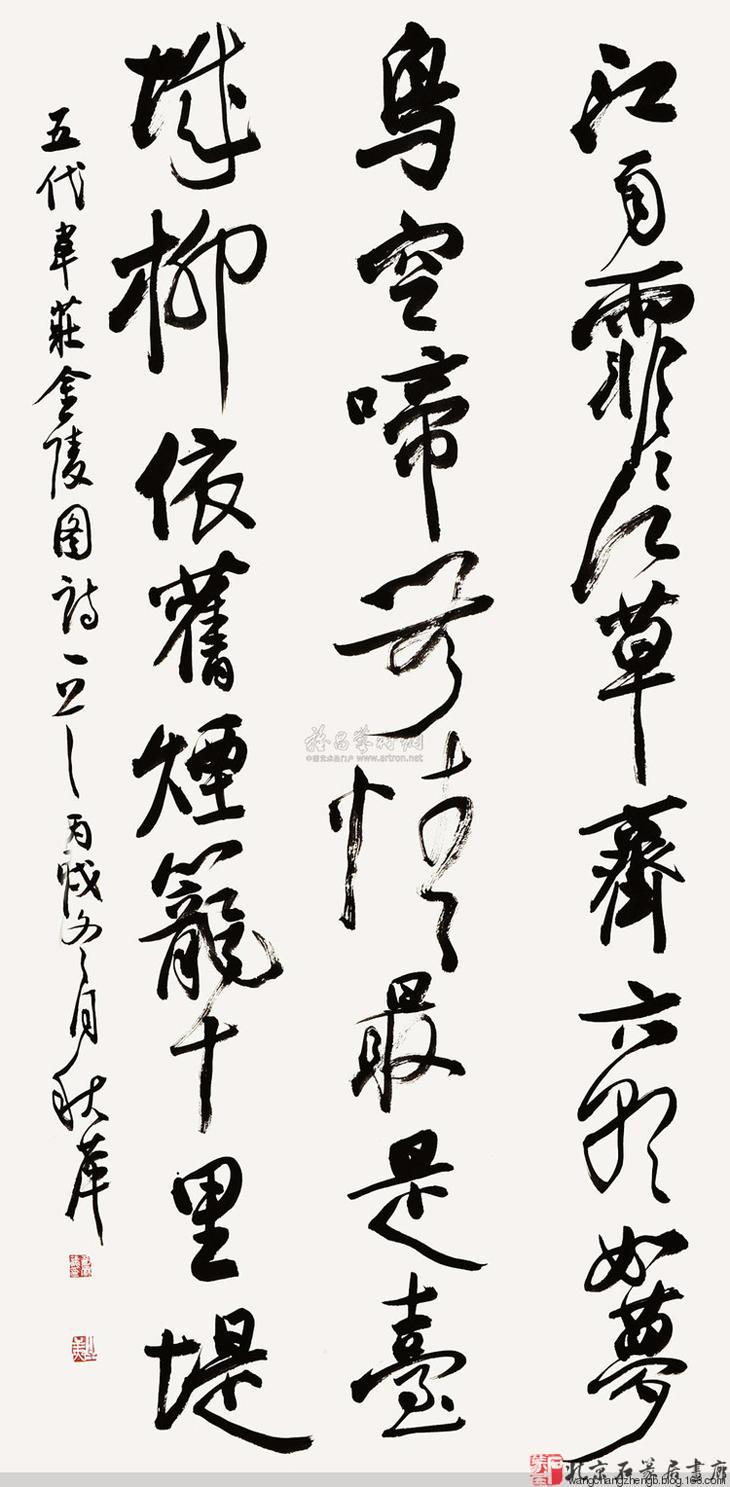 江雨霏霏江草齊六朝如夢
鳥空啼無情最是臺
城柳依舊煙籠十里堤
五代韋莊金陵圖詩一首 丙戌冬月秋
雅昌藝術網
中国艺术品门户 www.artron.net
北京石居書廊
wangchangzhengb.blog.163.com